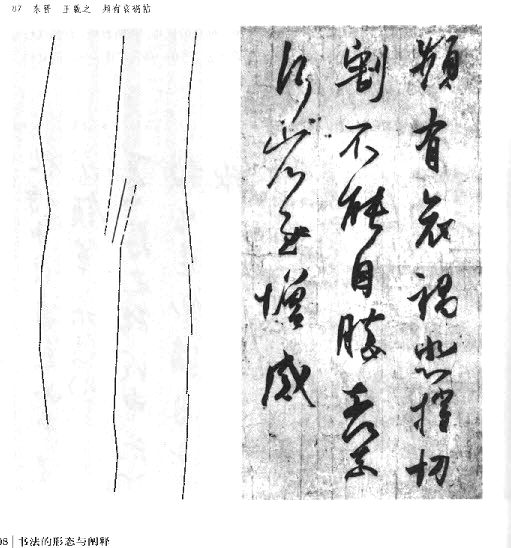 87 东晋 王羲之 频有哀祸帖
頻有哀禍悲摧切
割不能自勝奈
何省慰增感
98 | 书法的形态与阐释